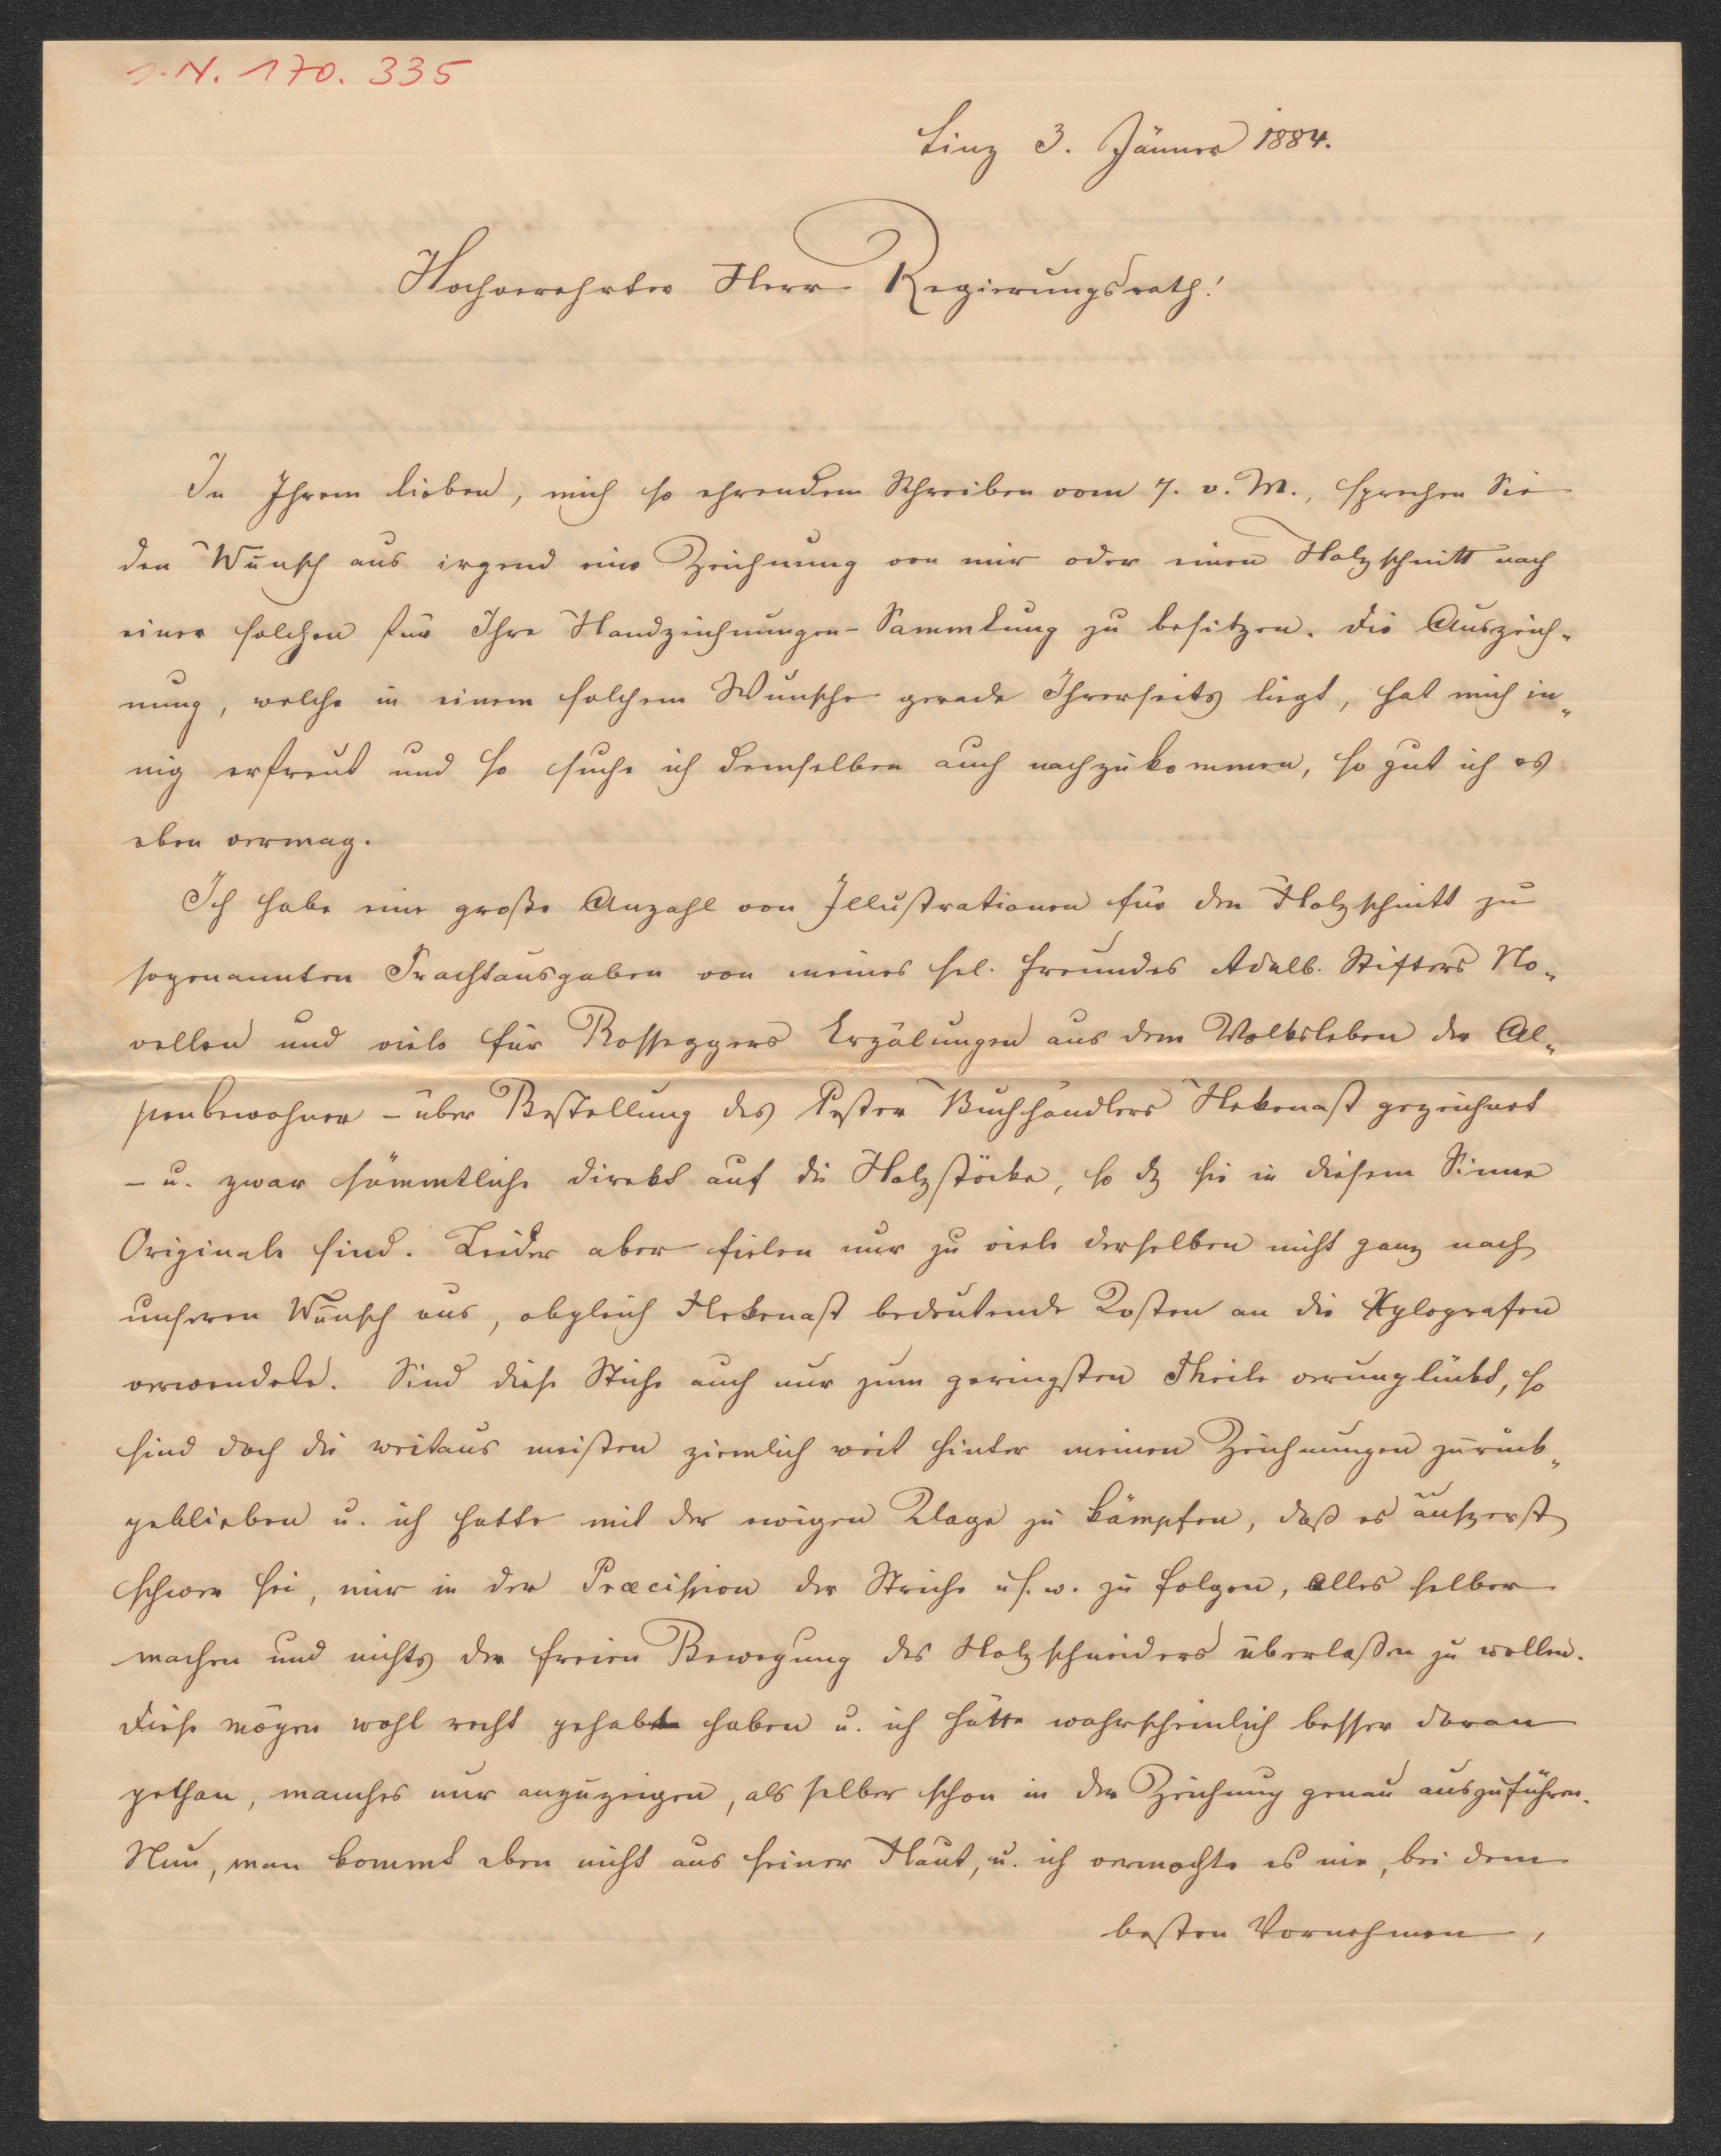 I.N. 170.335
Linz 3. Jänner 1884.
Hochverehrter Herr Regierungsrath!
In Ihrem lieben, mich so ehrendem Schreiben vom 7. v. M., sprechen Sie
den Wunsch aus irgend eine Zeichnung von mir oder einen Holzschnitt nach
einer solchen für Ihre Handzeichnungen-Sammlung zu besitzen. Die Auszeich-
nung, welche in einem solchem Wunsche gerade Ihrerseits liegt, hat mich in-
nig erfreut und so suche ich demselben auch nachzukommen, so gut ich es
eben vermag.
Ich habe eine große Anzahl von Illustrationen für den Holzschnitt zu
sogenannten Prachtausgaben von meines sel. Freundes Adalb. Stifters No-
vellen und viele für Rosseggers Erzälungen aus dem Volksleben der Al-
penbewohner – über Bestellung des Pester Buchhändlers Hekenast gezeichnet
– u. zwar sämmtliche direkt auf die Holzstöcke, so dß sie in diesem Sinne
Originale sind. Leider aber fielen nur zu viele derselben nicht ganz nach
unserem Wunsch aus, obgleich Hekenast bedeutende Kosten an die Xylografen
verwendete. Sind diese Stiche auch nur zum geringsten Theile verunglückt, so
sind doch die weitaus meisten ziemlich weit hinter meinen Zeichnungen zurück-
geblieben u. ich hatte mit der ewigen Klage zu kämpfen, daß es äußerst
schwer sei, mir in der Præcission der Striche u.s.w. zu folgen, alles selber
machen und nichts der freien Bewegung des Holzschneiders überlaßen zu wollen.
Diese mögen wohl recht gehabt haben u. ich hätte wahrscheinlich besser daran
gethan, manches nur anzuzeigen, als selber schon in der Zeichnung genau auszuführen.
Nun, man kommt eben nicht aus seiner Haut, u. ich vermochte es nie, bei dem
besten Vornehmen,